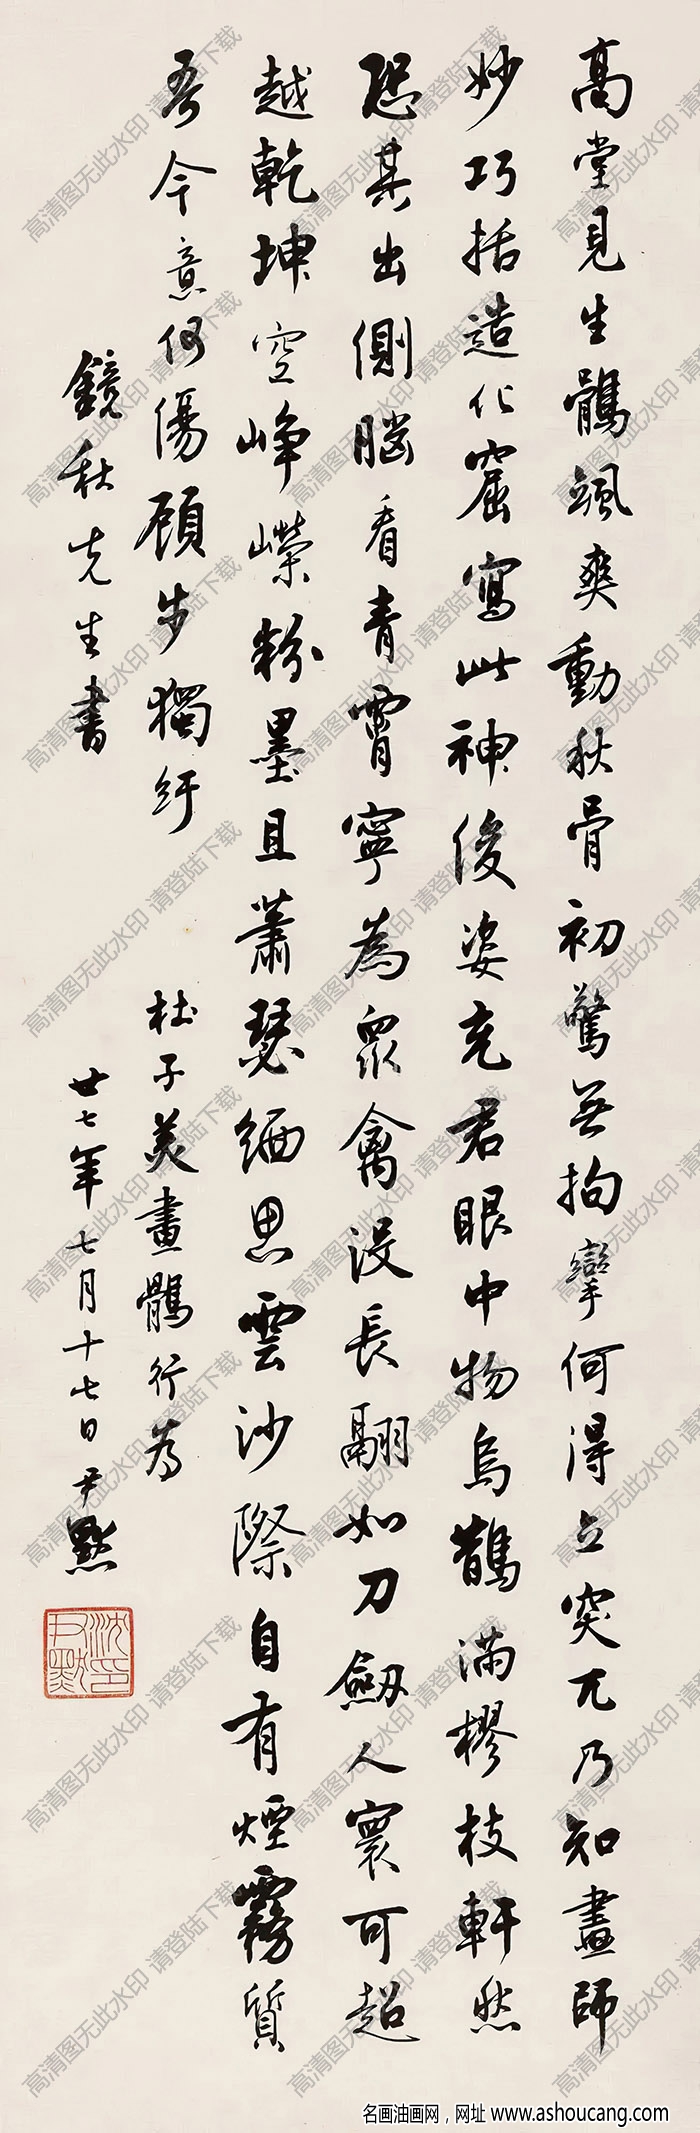 高堂見生鶻颯爽動秋骨初驚無拘攣何得立突兀乃知畫師
妙巧括造化窟寫此神俊姿充君眼中物烏鵲滿樛枝軒然
恐其出側腦看青霄寧為眾禽沒長翮如刀劒人寰可超
越乾坤空崢嶸粉墨且蕭瑟緬思雲沙際自有煙霧質
吾今意何傷顧步獨紆
杜子美畫鶻行為
鏡秋先生書
廿七年七月十七日尹默
沈尹默印
高清图无此水印 请登陆下载
名画油画网，网址 www.ashoucang.com